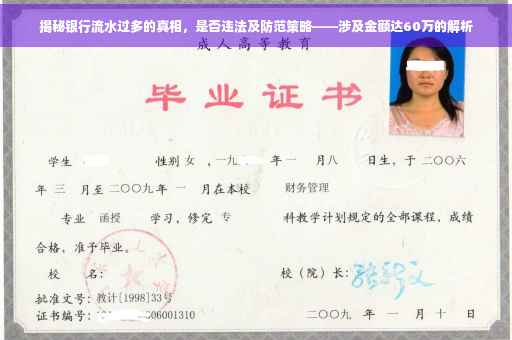 揭秘银行流水过多的真相，是否违法及防范策略——涉及金额达60万的解析
成人高等教育
毕业证书
学生 性别 女 ，一九 年 一 月八 日生，于 二〇〇六
年 三 月至 二〇〇九 年 一 月在本校 财务管理
专业 函授 学习，修完 专 科教学计划规定的全部课程，成绩
合格，准予毕业。
校 名： 校（院）长：
批准文号：教计[1998]33号
证书编号： 06001310 二〇〇九 年 一 月 十 日